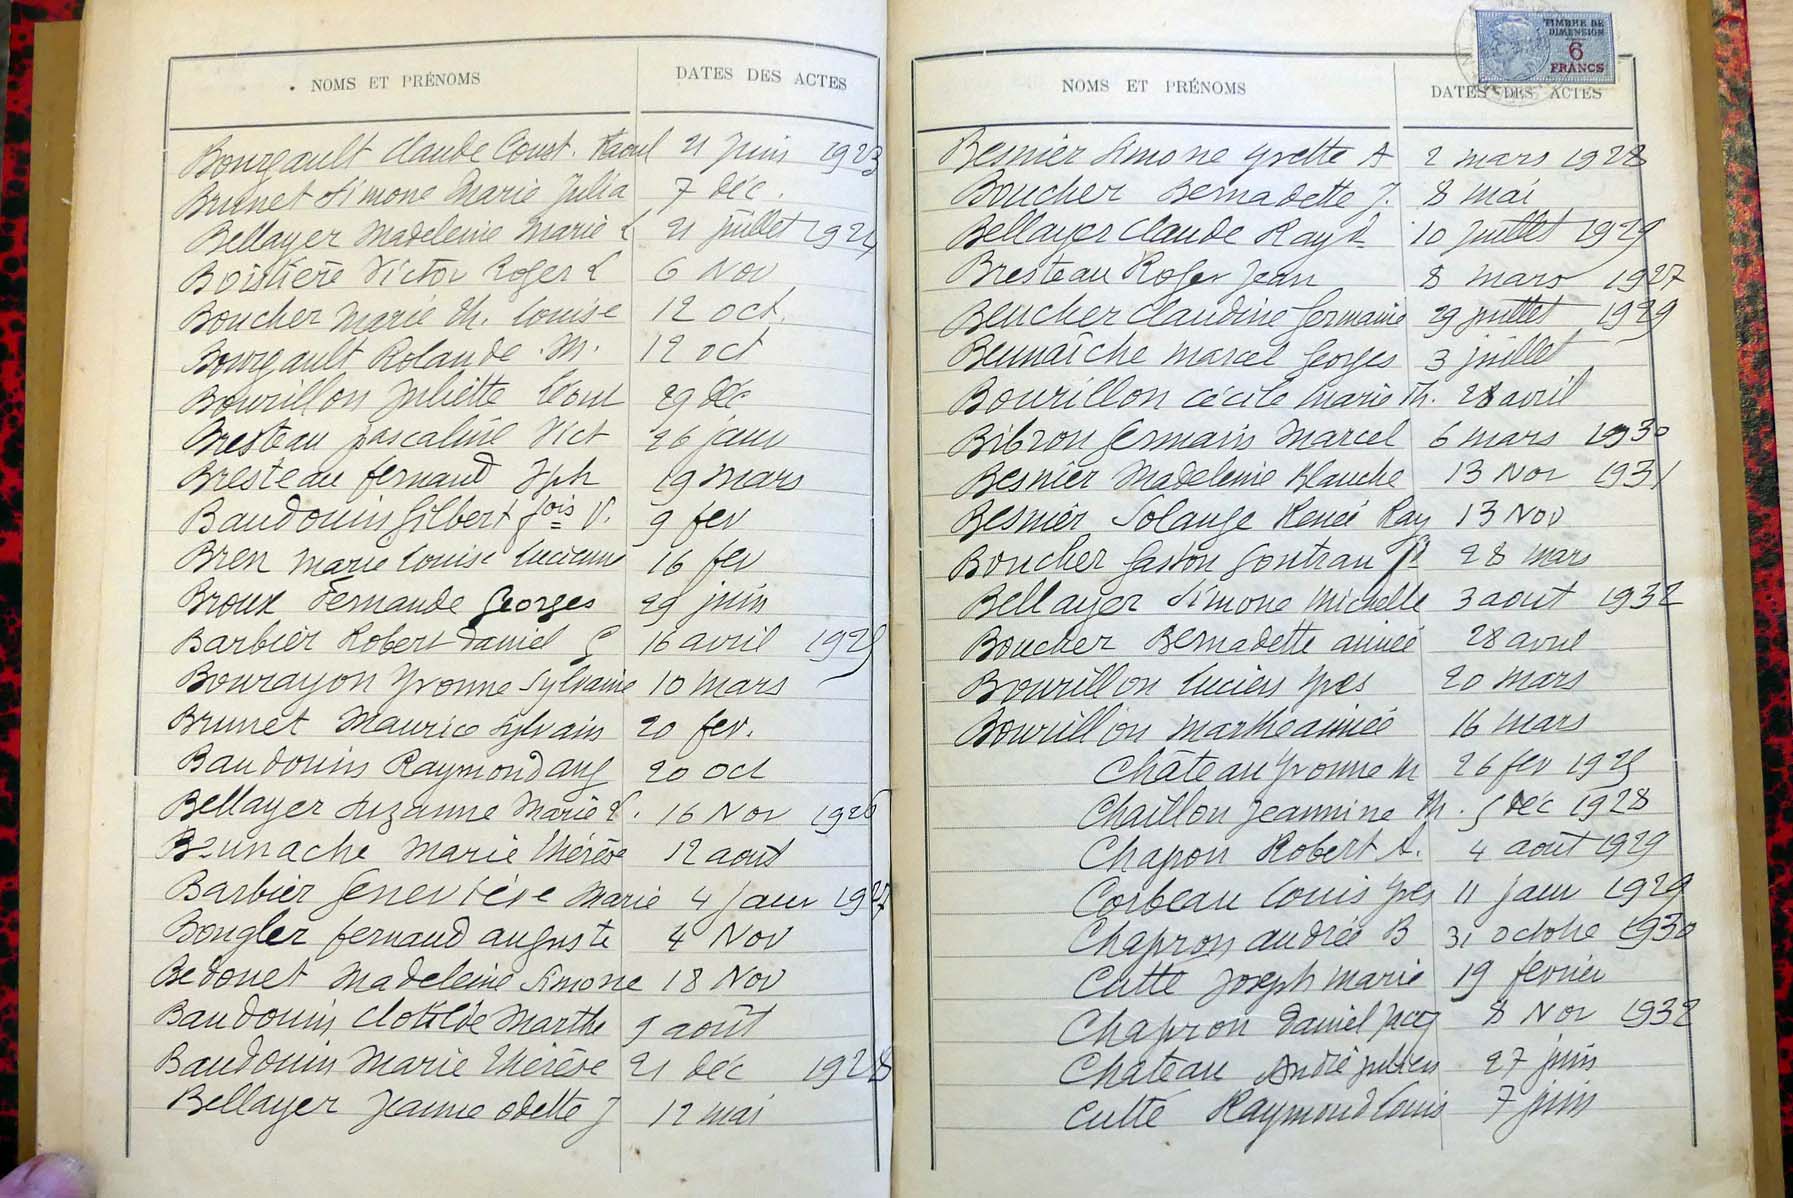 NOMS ET PRÉNOMS DATES DES ACTES
Bourgault Claude Const. Raoul 21 Juin 1923
Brunet Simone Marie Julia 7 déc.
Bellayer Madeleine Marie L 21 juillet 1924
Boistière Victor Roger L 6 Nov
Boucher Marie Th. Louise 12 oct.
Bourgault Rolande. M. 12 oct
Bourillon Juliette Léont 29 déc
Bresteau pascaline Vict 26 janv
Bresteau fernand Jph 19 mars
Baudouin Gilbert fois V. 9 fev
Bren Marie Louise Lucienne 16 fev
Broux Fernande Georges 29 juin
Barbier Robert Daniel G 16 avril 1925
Bourayon Yvonne Sylvaine 10 mars
Brunet Maurice Sylvain 20 fev.
Baudouin Raymond aug 20 oct
Bellayer Suzanne Marie L. 16 Nov 1926
Beunache Marie Thérèse 12 août
Barbier Geneviève Marie 4 Janv 1927
Bongler fernand auguste 4 Nov
Bedouet Madeleine Simone 18 Nov
Baudouin Clotilde Marthe 9 août
Baudouin Marie Thérèse 21 déc 1928
Bellayer Jeanne Odette J 12 mai
TIMBRE DE
DIMENSION
6
FRANCS
NOMS ET PRÉNOMS DATES DES ACTES
Besnier Simone Yvette A 2 mars 1928
Boucher Bernadette J. 8 mai
Bellayer Claude Rayd 10 Juillet 1929
Bresteau Roger Jean 8 mars 1927
Beucher Claudine Germaine 29 juillet 1929
Beunaiche Marcel Georges 3 juillet
Bourillon Cécile Marie Th. 28 avril
Bibron Germain Marcel 6 mars 1930
Besnier Madeleine Blanche 13 Nov 1931
Besnier Solange Renée Ray 13 Nov
Boucher Gaston Gontran 28 mars
Bellayer Simone Michelle 3 aout 1932
Boucher Bernadette aimée 28 avril
Bourillon Lucien Yves 20 mars
Bourillon Marthe aimée 16 mars
Château Yvonne M 26 fev 1925
Chaillou Jeannine Th. 5 Déc 1928
Chapon Robert A. 4 août 1929
Corbeau Louis Yves 11 janv 1929
Chapron andrée B 31 octobre 1930
Cutté Joseph Marie 19 février
Chapron Daniel Jacq 8 Nov 1932
Chateau André Julien 27 juin
Cutté Raymond Louis 7 juin